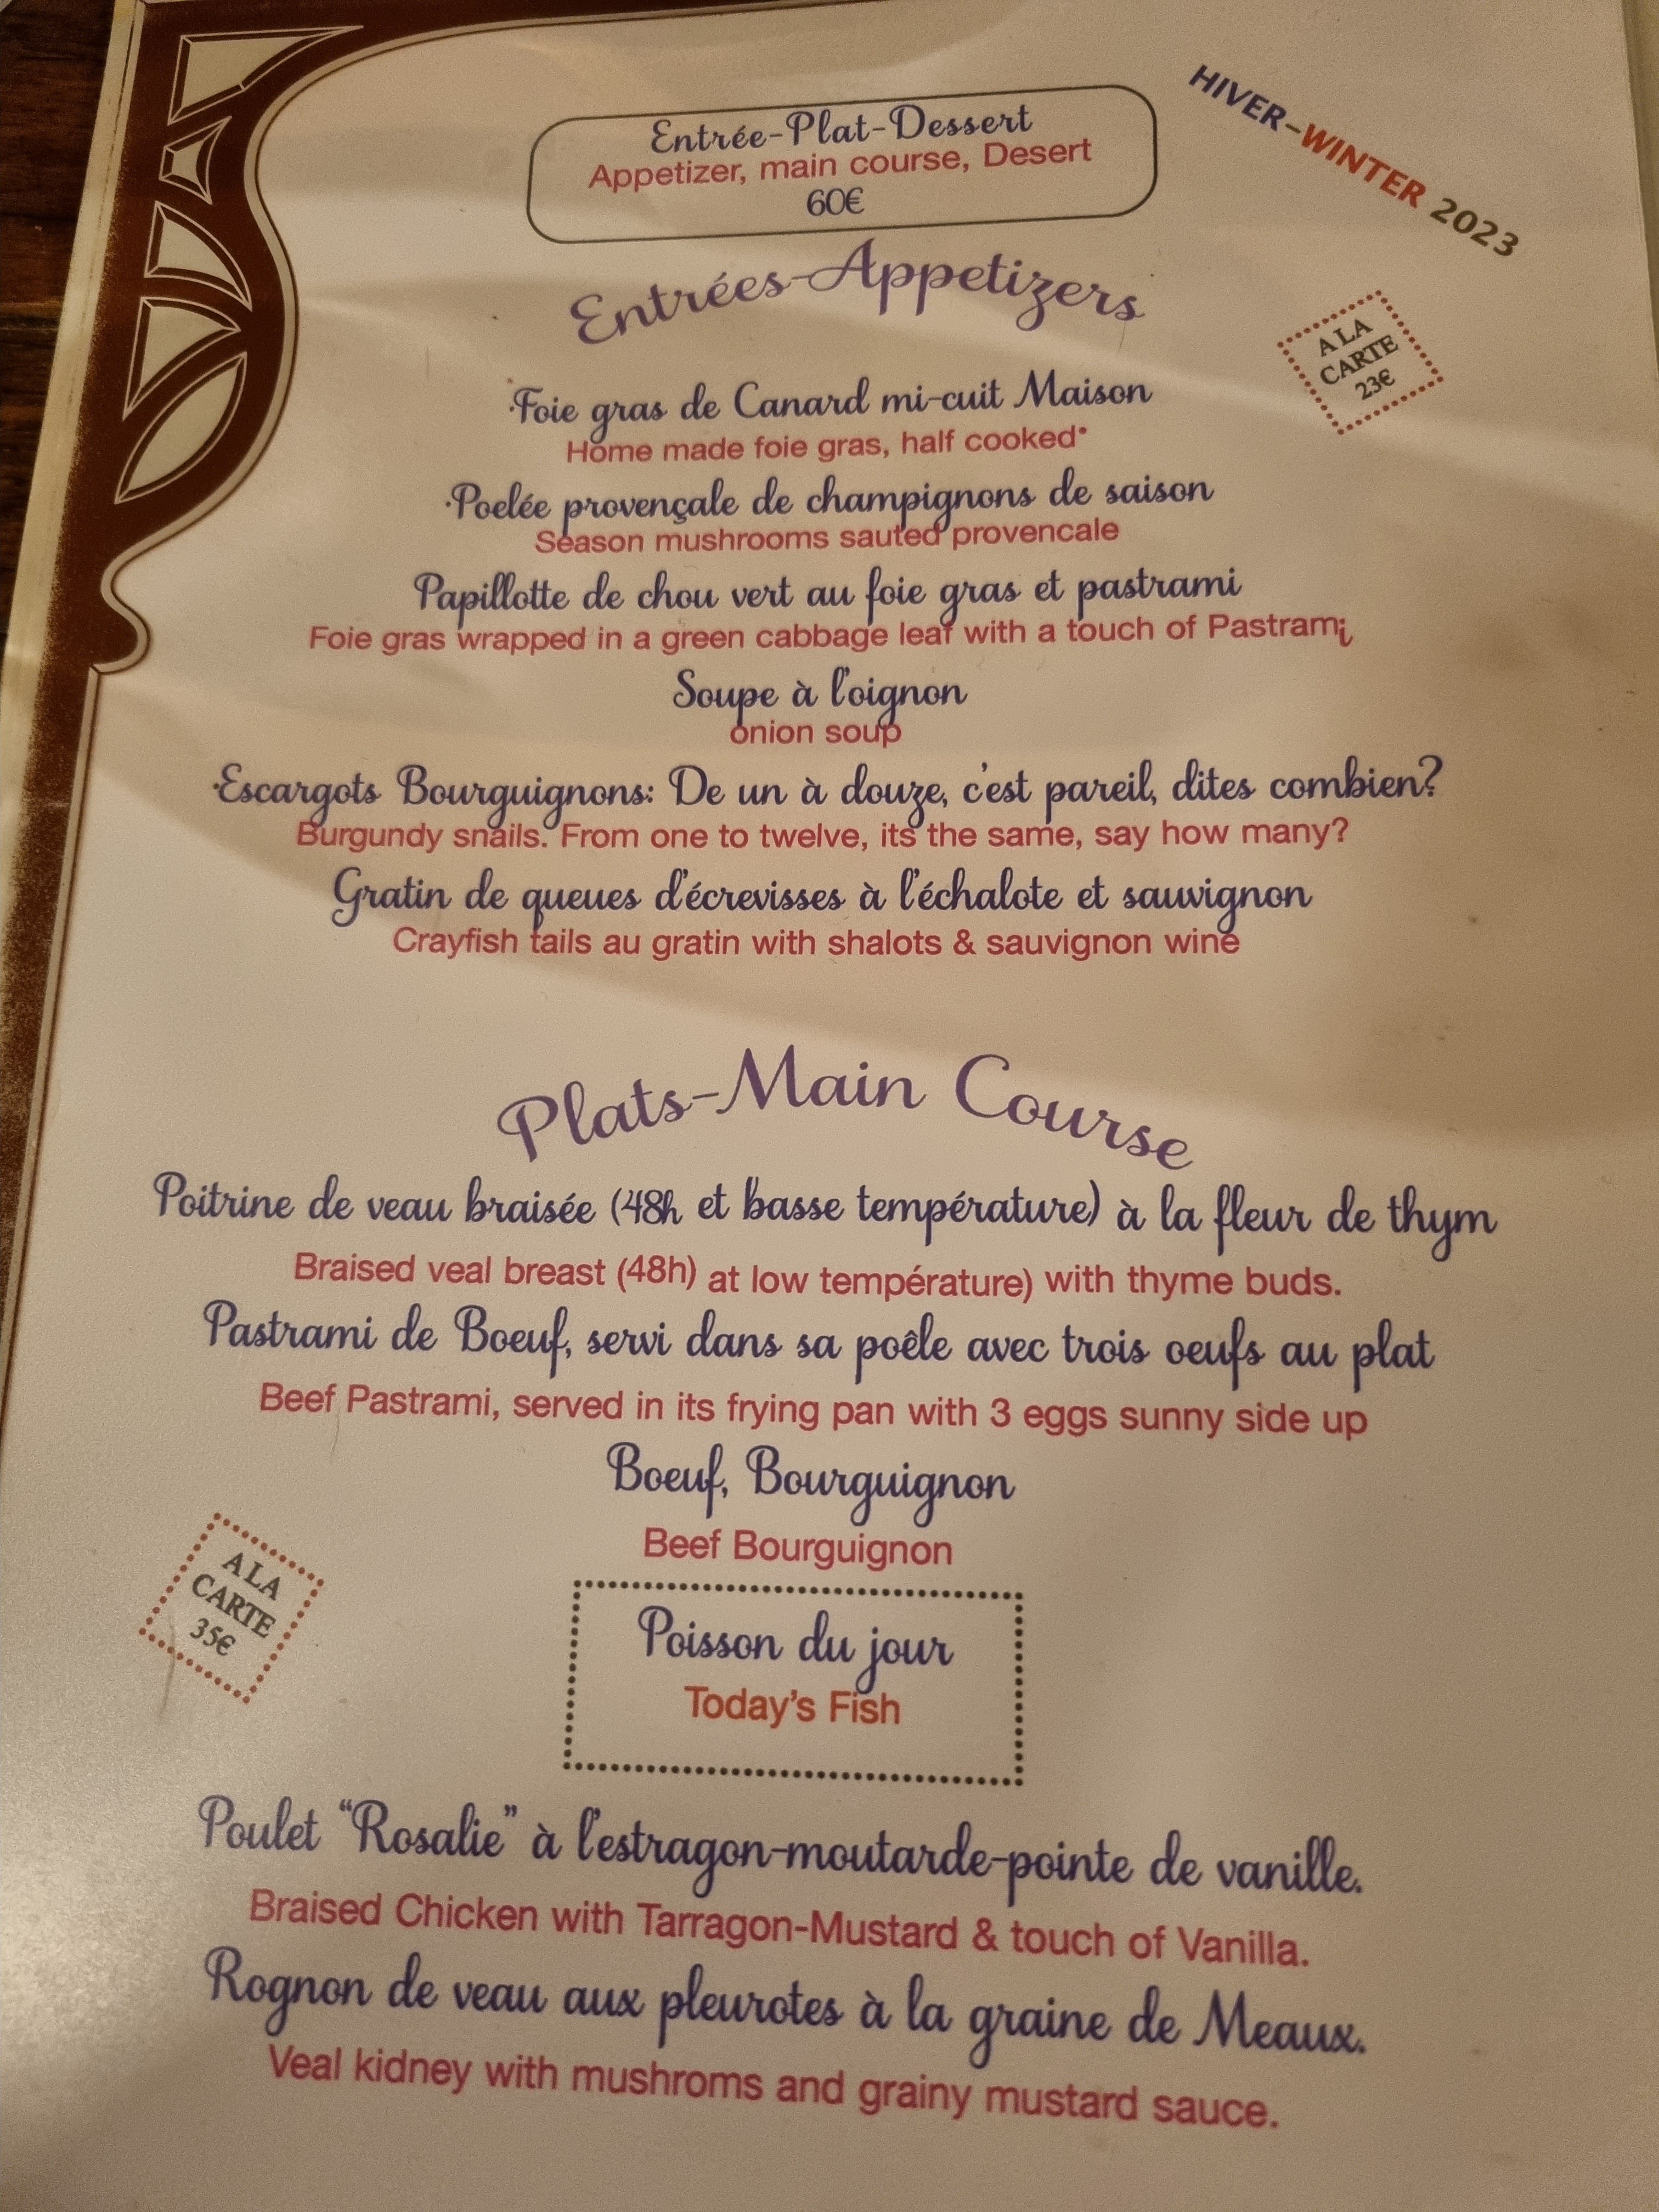 HIVER-WINTER 2023
Entrée-Plat-Dessert
Appetizer, main course, Desert
60€
Entrées-Appetizers
A LA
CARTE
23€
·Foie gras de Canard mi-cuit Maison
Home made foie gras, half cooked*
·Poelée provençale de champignons de saison
Season mushrooms sauted provencale
Papillotte de chou vert au foie gras et pastrami
Foie gras wrapped in a green cabbage leaf with a touch of Pastrami
Soupe à l'oignon
onion soup
·Escargots Bourguignons: De un à douze, c'est pareil, dites combien?
Burgundy snails. From one to twelve, its the same, say how many?
Gratin de queues d'écrevisses à l'échalote et sauvignon
Crayfish tails au gratin with shalots & sauvignon wine
Plats-Main Course
Poitrine de veau braisée (48h et basse température) à la fleur de thym
Braised veal breast (48h) at low température) with thyme buds.
Pastrami de Boeuf, servi dans sa poêle avec trois oeufs au plat
Beef Pastrami, served in its frying pan with 3 eggs sunny side up
Boeuf, Bourguignon
Beef Bourguignon
A LA
CARTE
35€
Poisson du jour
Today's Fish
Poulet “Rosalie” à l'estragon-moutarde-pointe de vanille.
Braised Chicken with Tarragon-Mustard & touch of Vanilla.
Rognon de veau aux pleurotes à la graine de Meaux.
Veal kidney with mushroms and grainy mustard sauce.